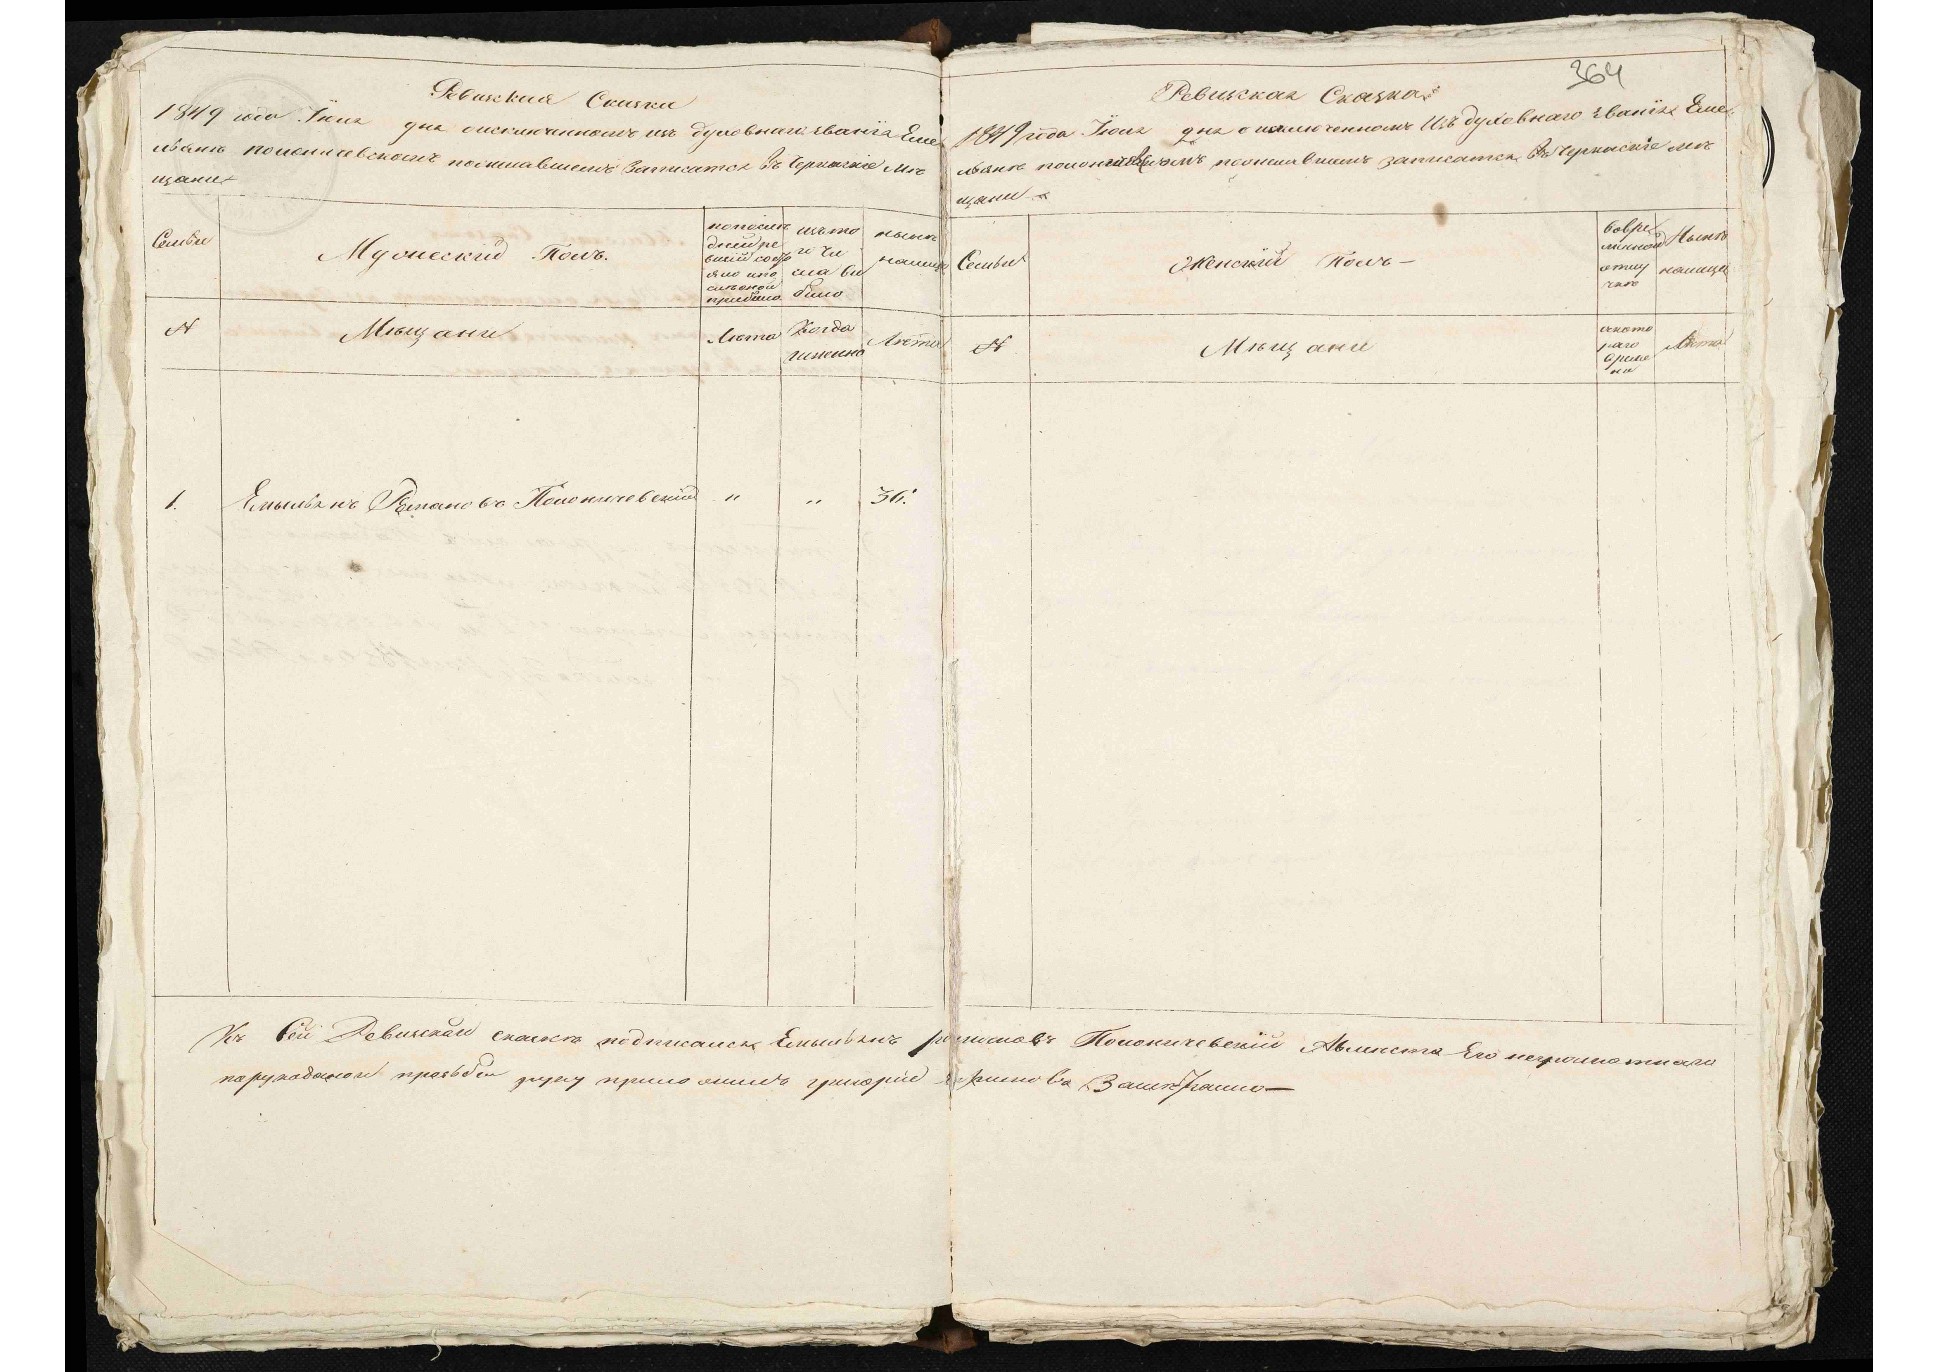 Ревизская Сказка
1849 года Июля дня о исключенномъ изъ духовнаго званія Еме
льянѣ Полоничевскомъ пожелавшемъ записатся въ Черкаскіе мѣ
щане
Семьи
Мужескій Полъ.
по послѣ
дней ре
визіи состо
яло и по
слѣ оной
прибыло
изъ то
го чи
сла вы
было
нынѣ
налицо
№
Мѣщане
Лѣта
Когда
именно
Лѣта
1.
Емыльянъ Романовъ Полоничевскій " " 36.
364
Ревизская Сказка
1849 года Июля дня о исключенномъ изъ духовнаго званія Еме
льянѣ Полоничевскомъ пожелавшимъ записатся въ Черкаскіе мѣ
щане
Семьи
Женскій Полъ
во вре
менной
отлу
чкѣ
Нынѣ
налицо
№
Мѣщане
съ кото
раго
време
ни
Лѣта
Къ сей Ревизской сказкѣ подписался Емыльянъ Романовъ Полоничевскій А вместо Его неграмотнаго
по рукоданой прозьбѣ руку приложилъ Григорій